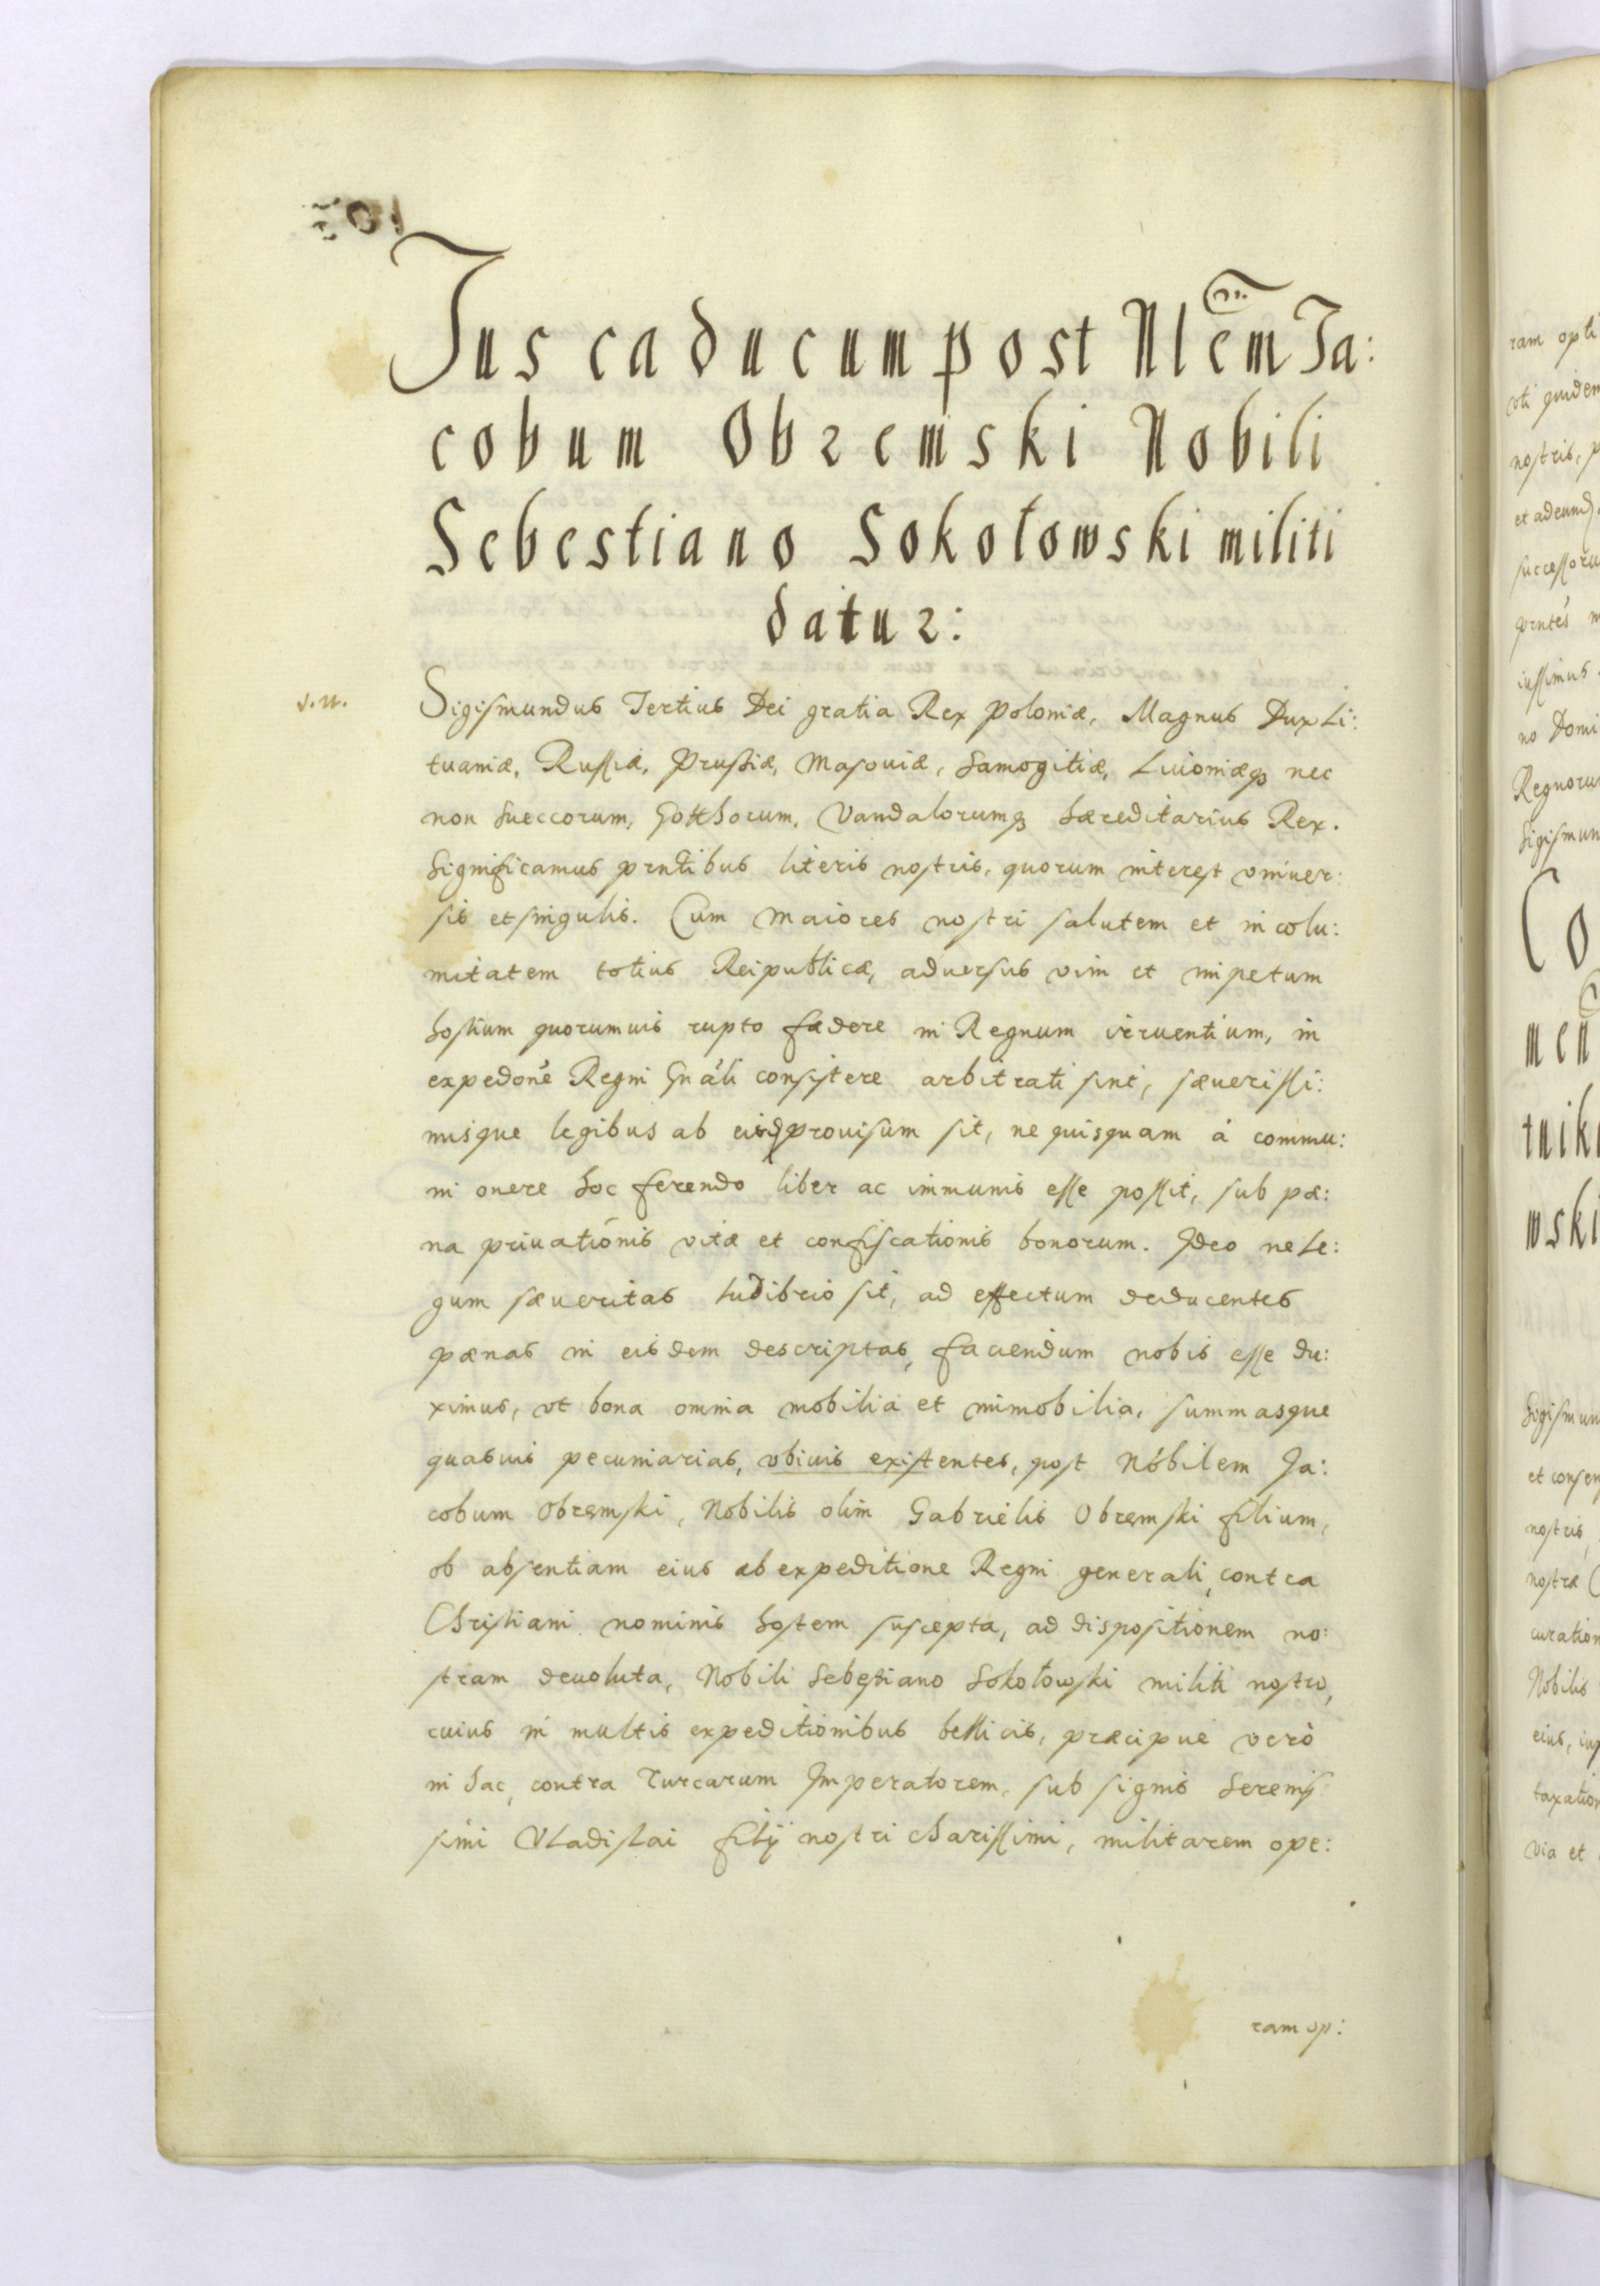 Jus caducum post Nlem Ja:
cobum Obremski Nobili
Sebestiano Sokołowski militi
datur:
Sigismundus Tertius Dei gratia Rex Poloniæ, Magnus Dux Li:
tuaniæ, Russiæ, Prussiæ, Masouiæ, Samogitiæ, Liuoniæq3 nec
non Sueccorum, Gotthorum, Vandalorumq3 hæreditarius Rex.
Significamus prntibus literis nostris, quorum interest vniuer:
sis et singulis. Cum maiores nostri salutem et incolu:
mitatem totius Reipublicæ, aduersus vim et impetum
hostium quorumuis rupto fædere in Regnum irruentium, in
expedone Regni Gnali consistere arbitrati sint, sæuerissi:
misque legibus ab eisd prouisum sit, ne quisquam à commu:
ni onere hoc ferendo liber ac immunis esse possit, sub pæ:
na priuationis vitæ et confiscationis bonorum. Ideo ne Le:
gum sæueritas ludibrio sit, ad effectum deducentes
pænas in eisdem descriptas, faciendum nobis esse du:
ximus, vt bona omnia mobilia et immobilia, summasque
quasuis pecuniarias, vbiuis existentes, post Nobilem Ja:
cobum Obremski, Nobilis olim Gabrielis Obremski filium,
ob absentiam eius ab expeditione Regni generali, contra
Christiani nominis hostem suscepta, ad dispositionem no:
stram deuoluta, Nobili Sebestiano Sokołowski militi nostro,
cuius in multis expeditionibus bellicis, præcipuè verò
in hac, contra Turcarum Imperatorem, sub signis Serenis
simi Vladislai filij nostri charissimi, militarem ope:
ram op: